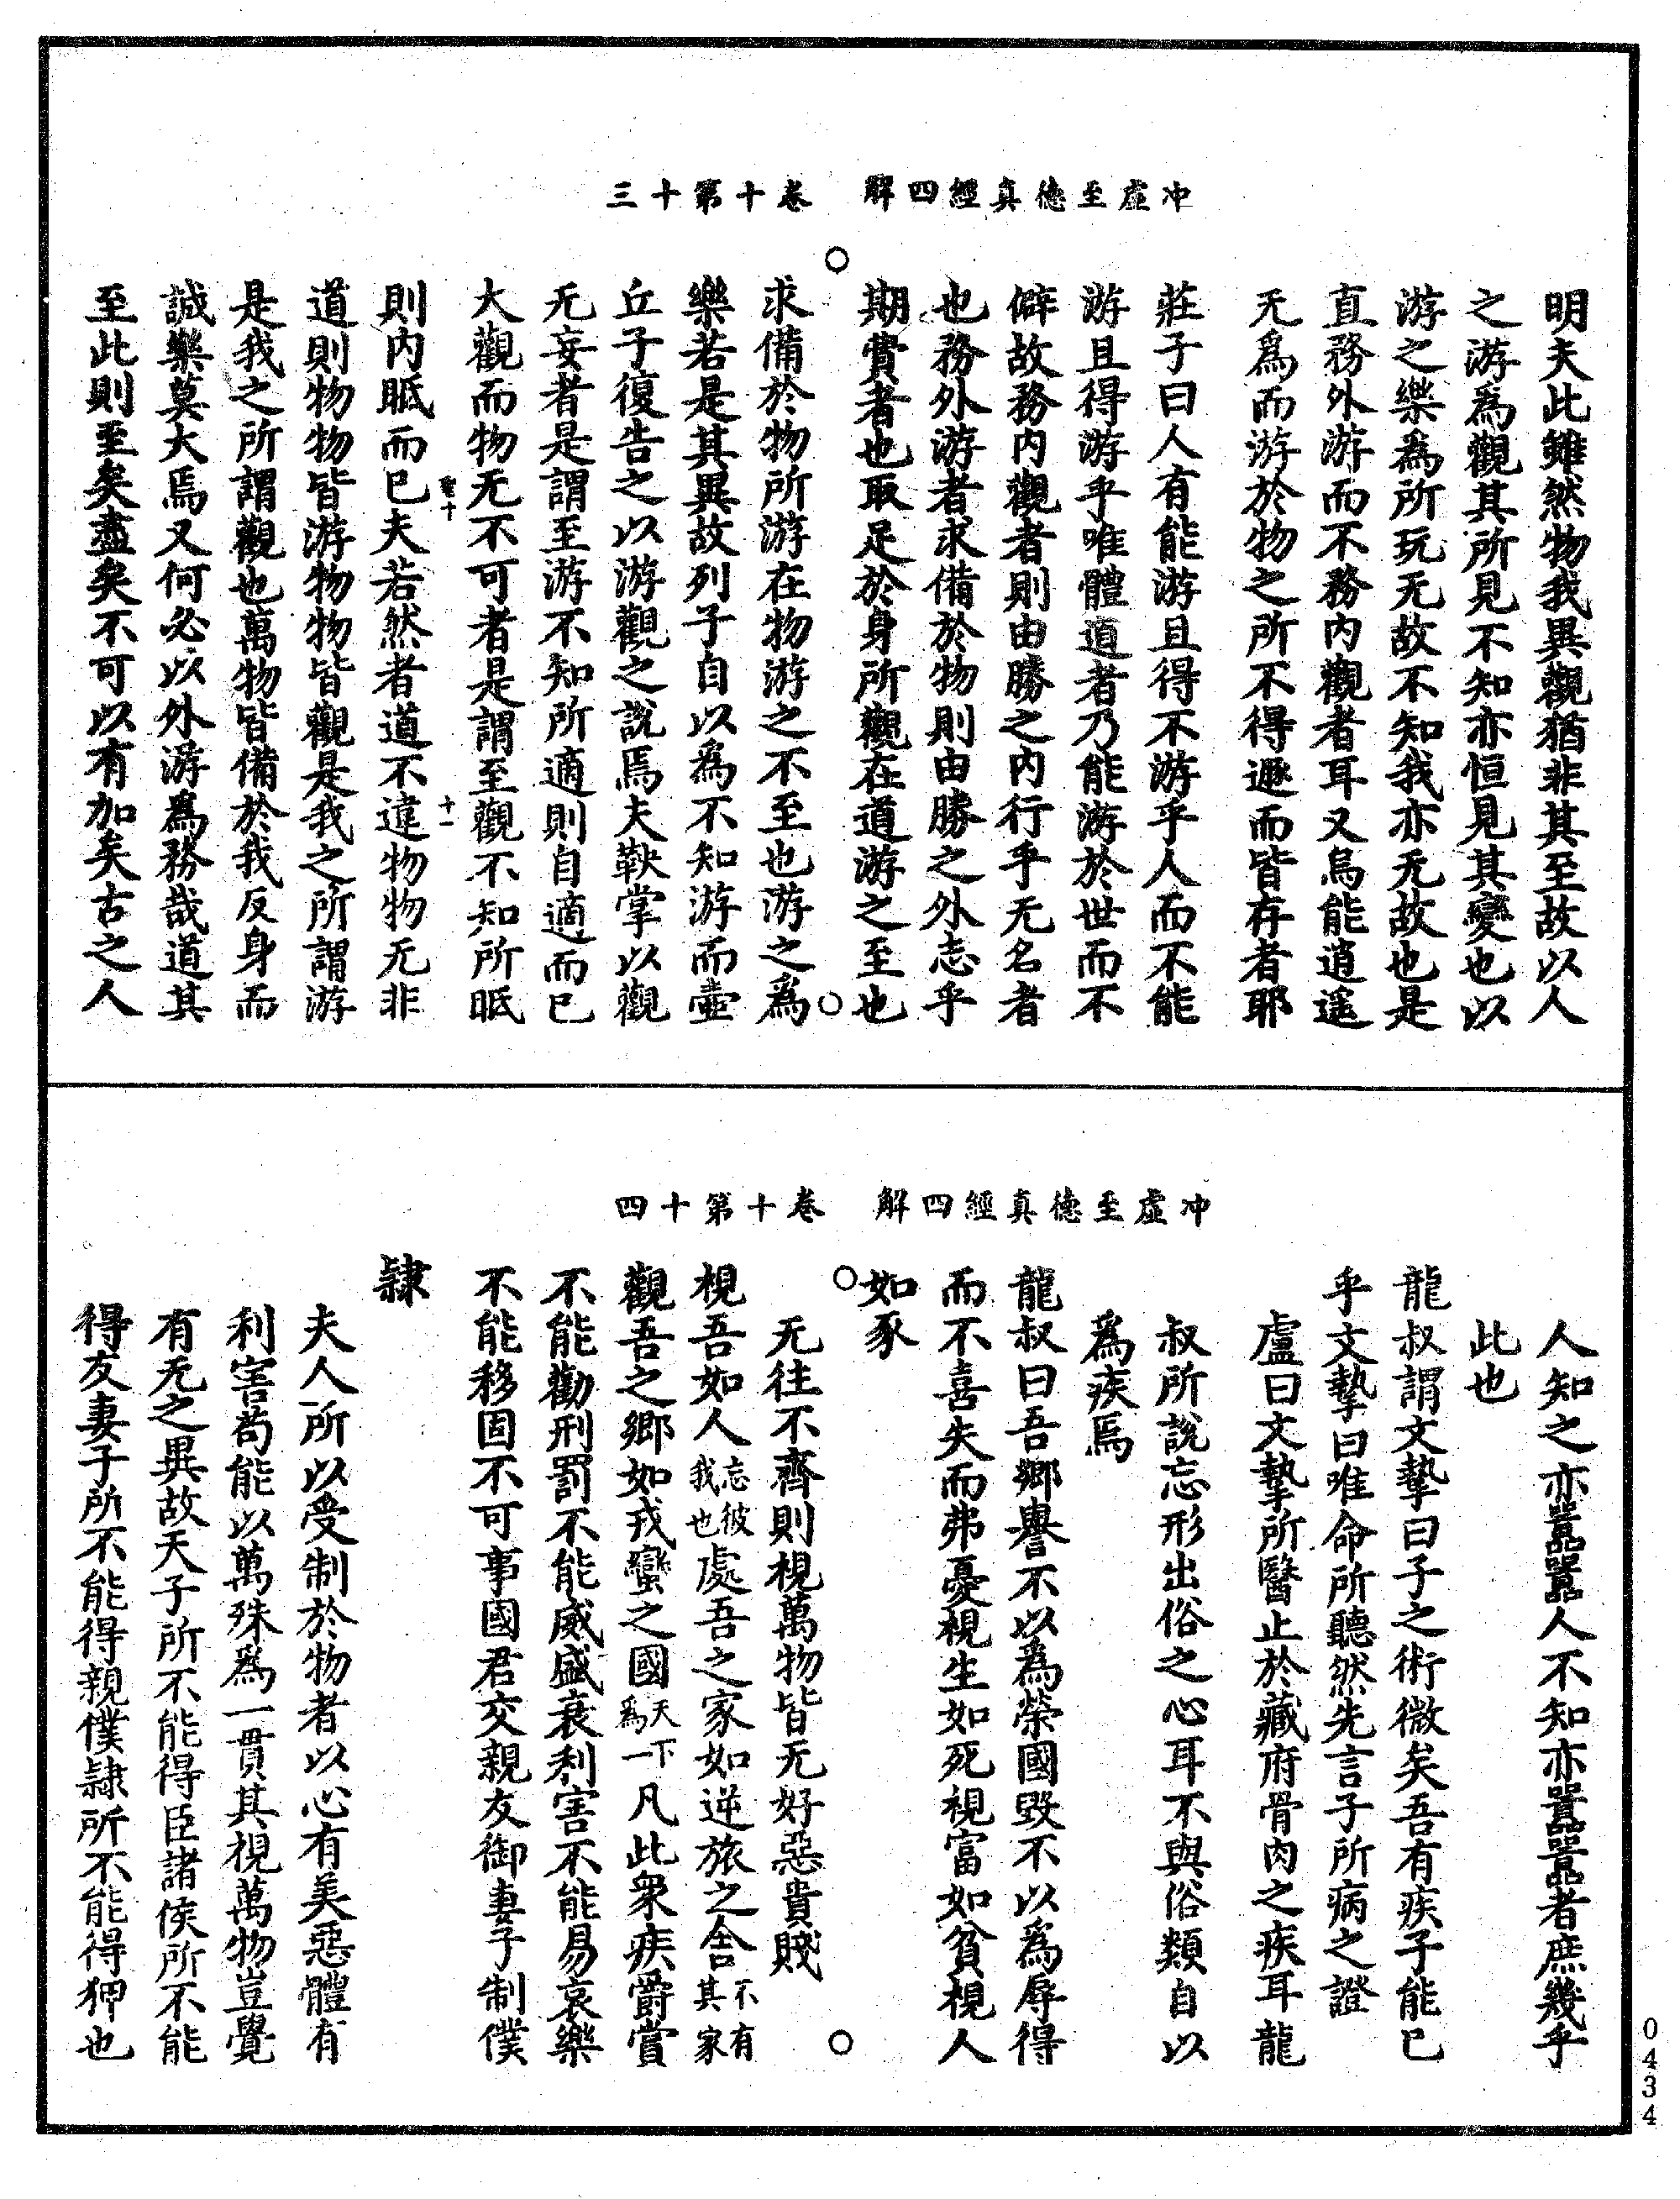 冲虛至德真經四解　卷十第十三
明夫此雖然物我異觀猶非其至故以人
之游爲觀其所見不知亦恒見其變也以
游之樂爲所玩无故不知我亦无故也是
直務外游而不務内觀者耳又烏能逍遥
无爲而游於物之所不得遯而皆存者耶
莊子曰人有能游且得不游乎人而不能
游且得游乎唯體道者乃能游於世而不
僻故務内觀者則由勝之内行乎无名者
也務外游者求備於物則由勝之外志乎
期費者也取足於身所觀在道游之至也
求備於物所游在物游之不至也游之爲
樂若是其異故列子自以爲不知游而壷
丘子復告之以游觀之說焉夫鞅掌以觀
无妄者是謂至游不知所適則自適而已
大觀而物无不可者是謂至觀不知所眂
則内眂而已夫若然者道不違物物无非
聖十　十一
道則物物皆游物物皆觀是我之所謂游
是我之所謂觀也萬物皆備於我反身而
誠樂莫大焉又何必以外游爲務哉道其
至此則至矣盡矣不可以有加矣古之人
冲虛至德真經四解　卷十第十四
人知之亦囂囂人不知亦囂囂者庶幾乎
此也
龍叔謂文摯曰子之術微矣吾有疾子能已
乎文摯曰唯命所聽然先言子所病之證
盧曰文摯所醫止於藏府骨肉之疾耳龍
叔所說忘形出俗之心耳不與俗類自以
爲疾焉
龍叔曰吾鄉譽不以爲榮國毀不以爲辱得
而不喜失而弗憂視生如死視富如貧視人
如豕
无往不齊則視萬物皆无好惡貴賤
視吾如人忘彼我也處吾之家如逆旅之舍不有其家
觀吾之鄉如戎蠻之國天下爲一凡此衆疾爵賞
不能勸刑罰不能威盛衰利害不能易哀樂
不能移固不可事國君交親友御妻子制僕
隸
夫人所以受制於物者以心有美惡體有
利害苟能以萬殊爲一貫其視萬物豈覺
有无之異故天子所不能得臣諸侯所不能
得友妻子所不能得親僕隸所不能得狎也
0434